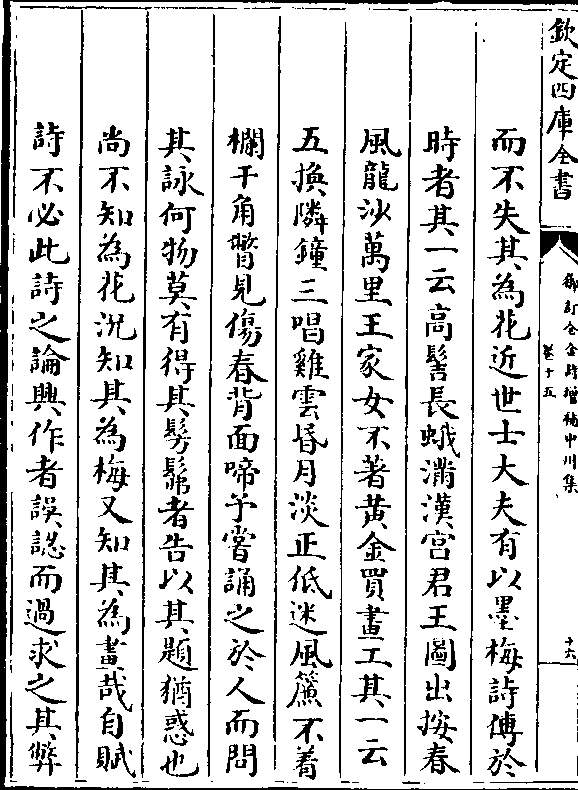 欽定四庫全書
御訂全金詩增補中州集
卷十五
十六
而不失其為花近世士大夫有以墨梅詩傳於
時者其一云高髻長蛾滿漢宮君王圖出按春
風龍沙萬里王家女不著黃金買畫工其一云
五換隣鐘三唱雞雲昏月淡正低迷風簾不著
欄干角瞥見傷春背面啼予嘗誦之於人而問
其詠何物莫有得其髣髴者告以其題猶惑也
尚不知為花況知其為梅又知其為畫哉自賦
詩不必此詩之論興作者誤認而過求之其弊